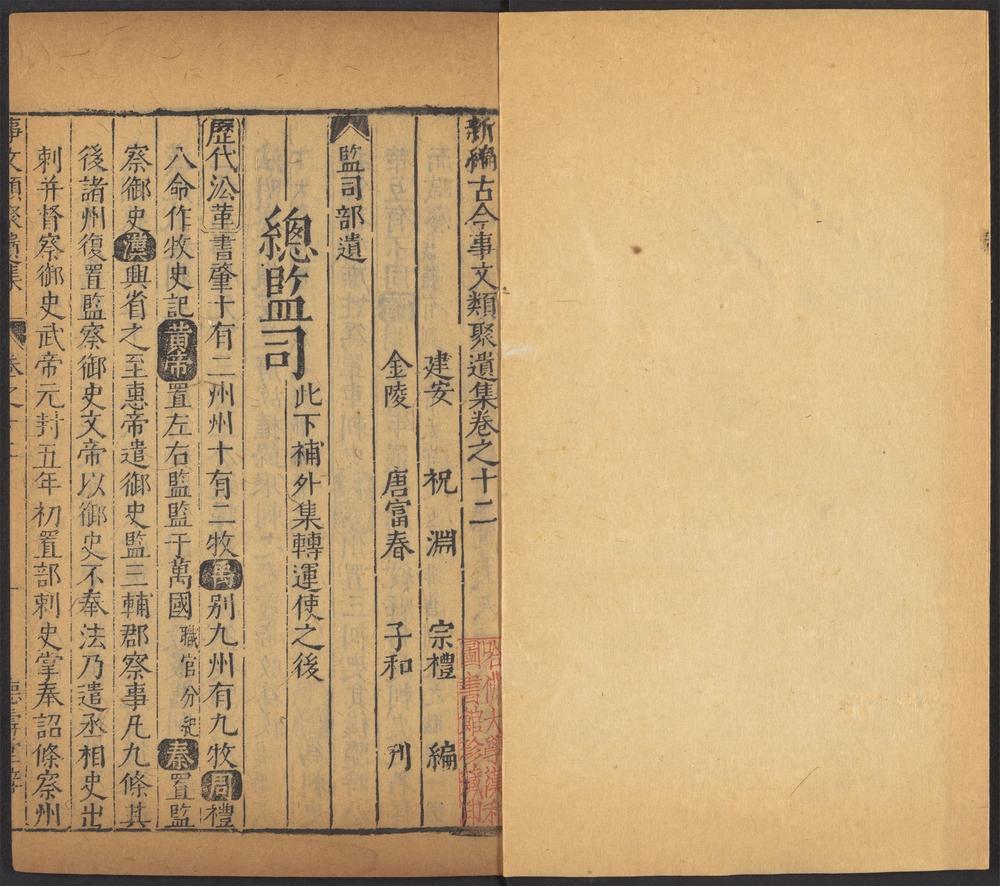 新編古今事文類聚遺集卷之十二
建安　祝　淵　宗禮　編
金陵　唐富春　子和　刋
監司部遺
總監司
此下補外集轉運使之後
歷代沿革書肇十有二州州十有二牧禹别九州有九牧周禮
八命作牧史記黄帝置左右監監于萬國職官分紀秦置監
察御史漢興省之至惠帝遣御史監三輔郡察事凡九條其
後諸州復置監察御史文帝以御史不奉法乃遣丞相史出
刺并督察御史武帝元封五年初置部刺史掌奉詔條察州
事文類聚遺集　卷之十二　德壽堂梓
哈佛大學漢和圖書館珍藏印